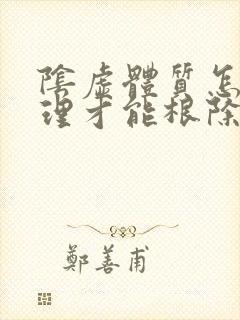 陰虛體質怎
理才能根除
鄭善甫